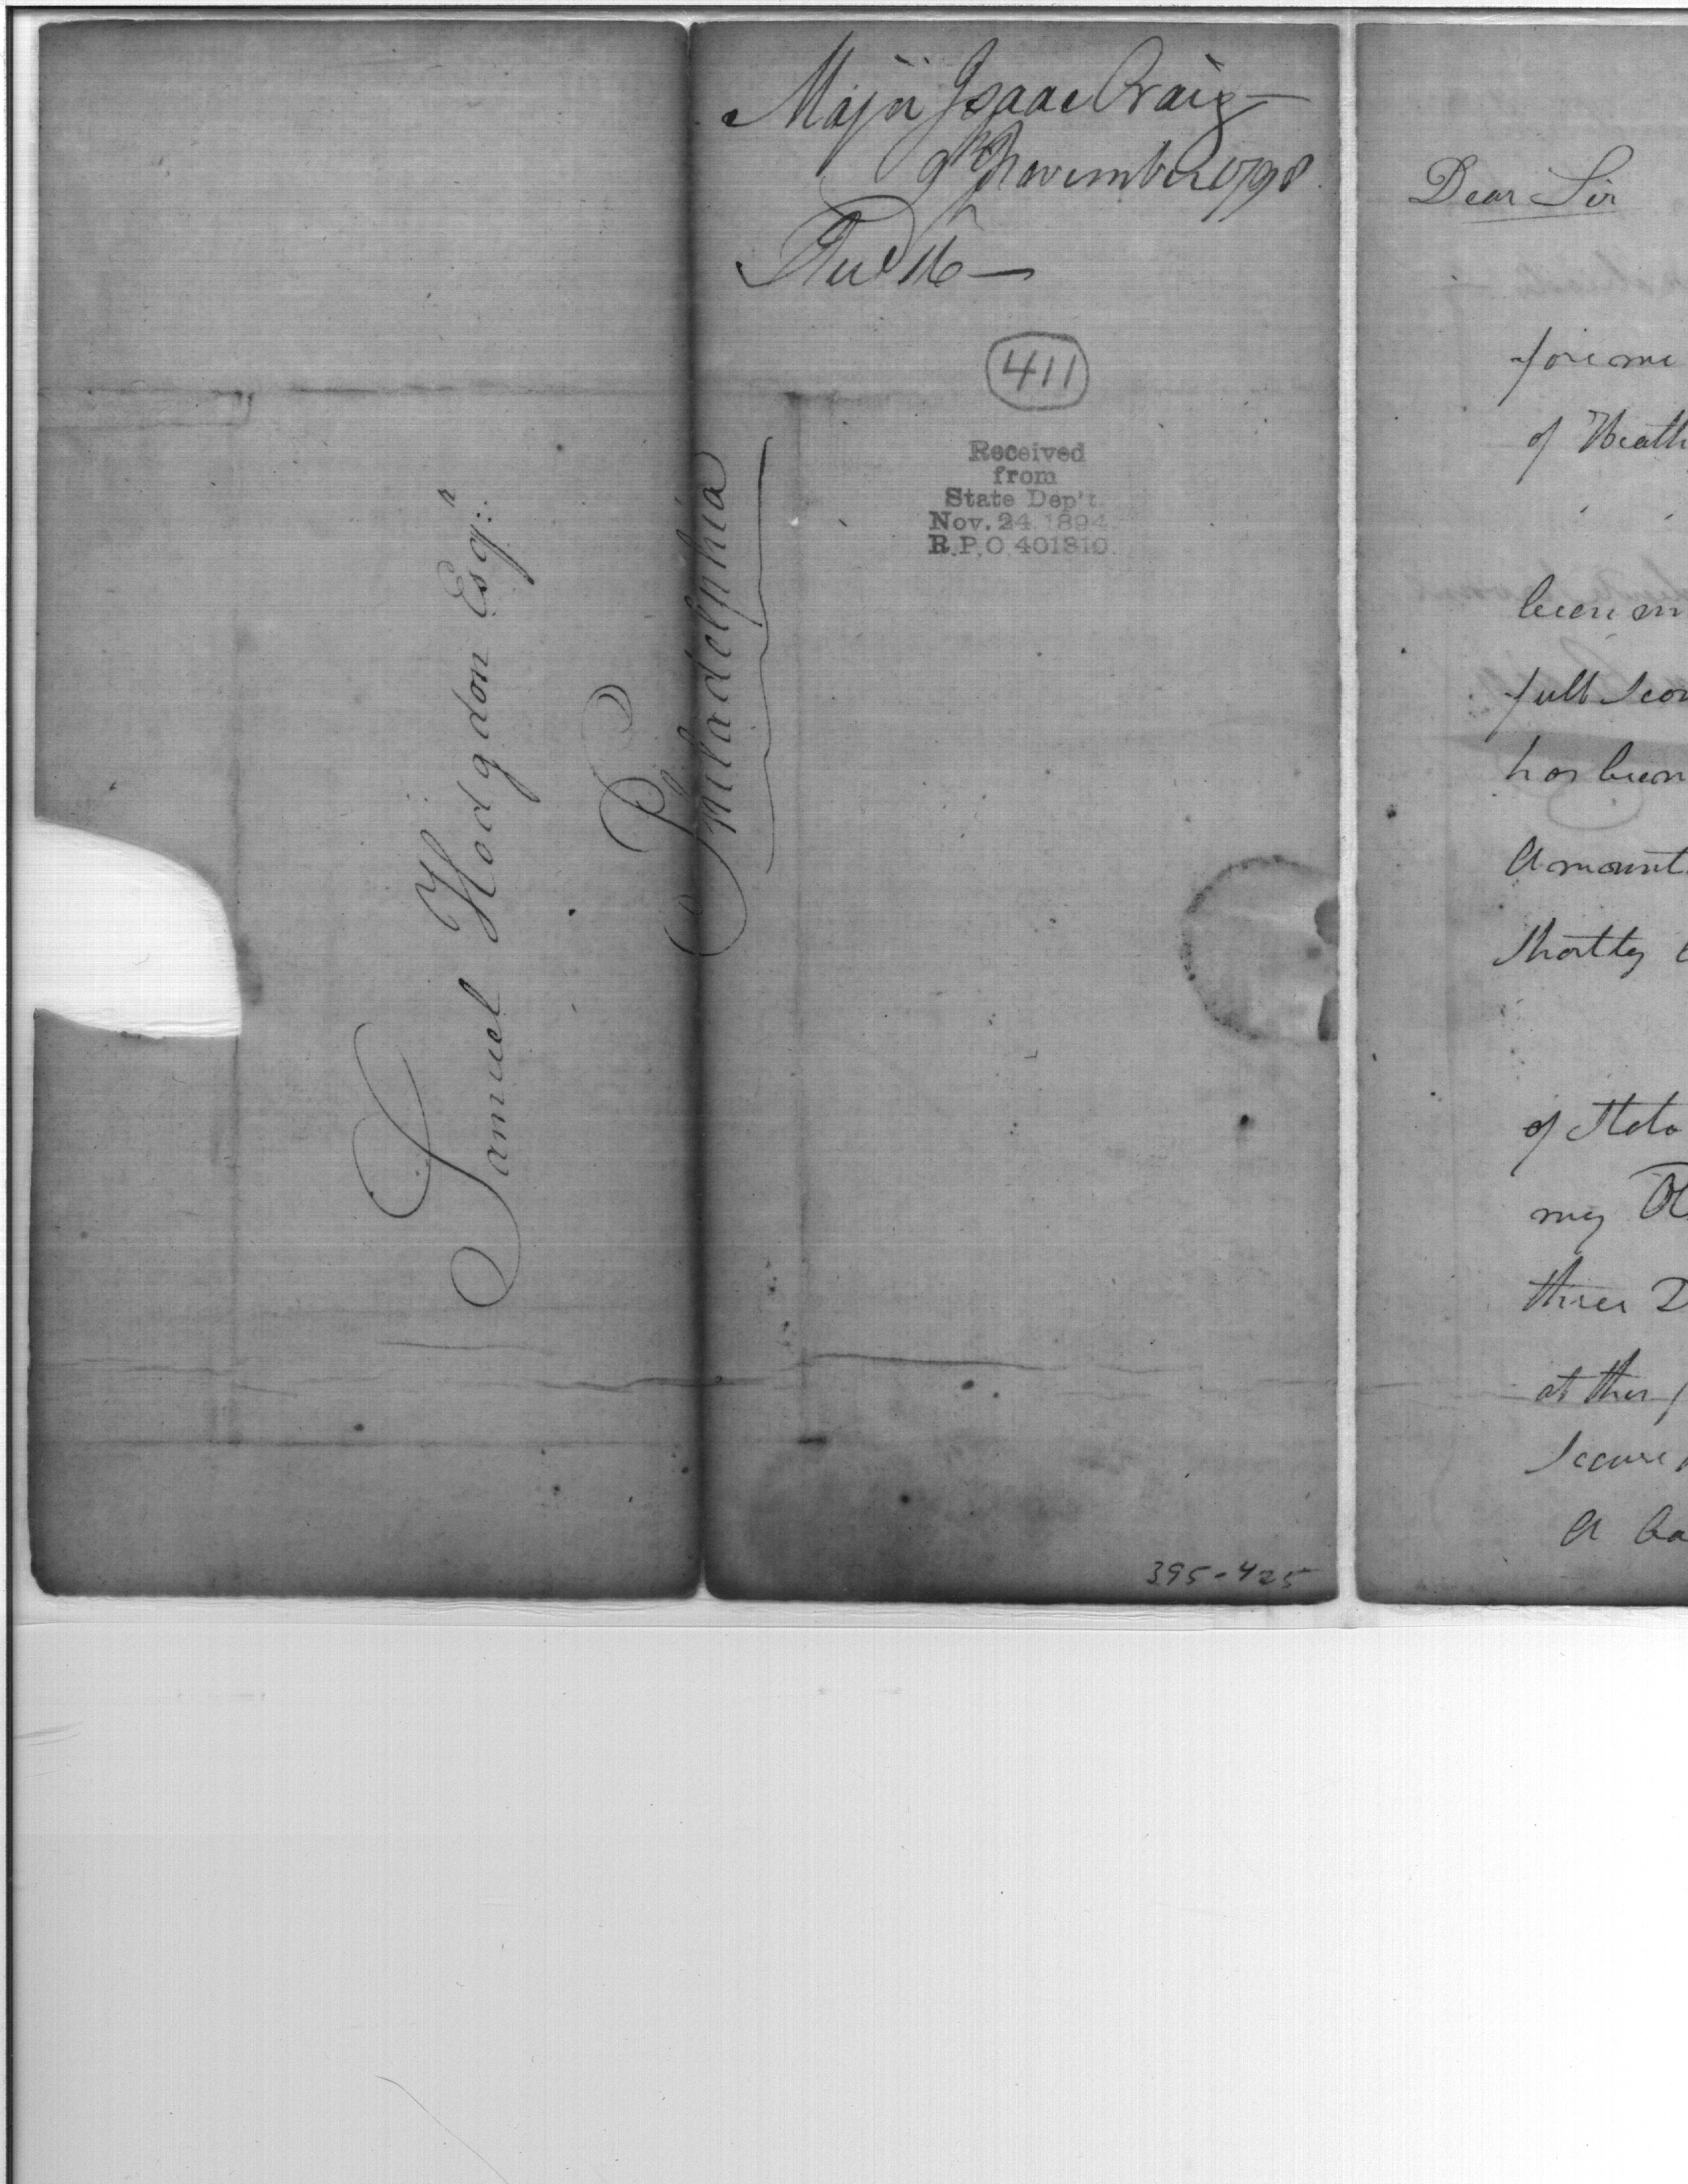 Samuel Hodgdon Esqr.
Philadelphia
Major Isaac Craig
9th November 1798
Recd 16
411
Received
from
State Dep't.
Nov. 24. 1894.
R.P.O. 401810.
395-425
Dear Sir
fore me
of
been
full
has been
Amount
Shortly
of
my
three
at
Secure
A